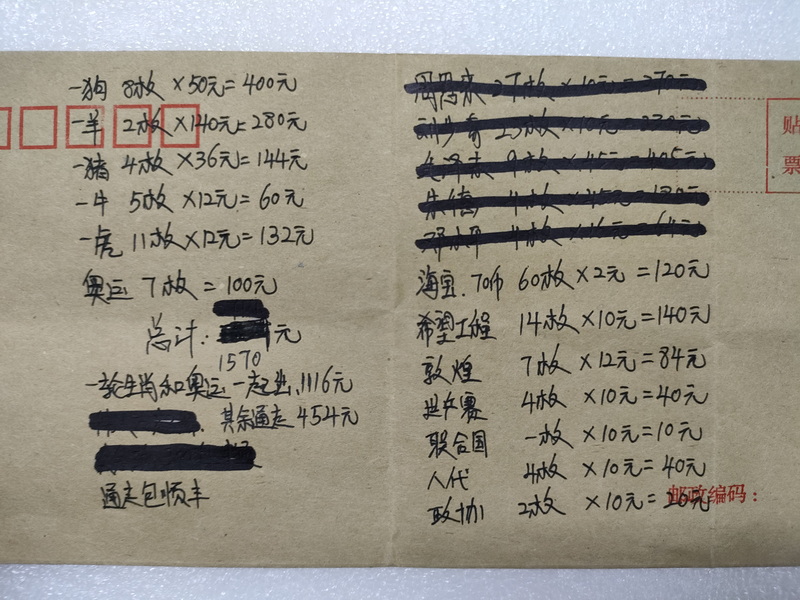 一狗 8枚 ×50元=400元
一羊 2枚 ×140元=280元
一猪 4枚 ×36元=144元
一牛 5枚 ×12元=60元
一虎 11枚 ×12元=132元
奥运 7枚 = 100元
总计: 元
1570
一轮生肖和奥运一起出,1116元
其余通走454元
通走包顺丰
周恩来 27枚 ×10元=270元
9枚 ×45元=405元
海宝.70币 60枚 ×2元=120元
希望工程 14枚 ×10元=140元
敦煌 7枚 ×12元=84元
世乒赛 4枚 ×10元=40元
联合国 一枚 ×10元=10元
人代 4枚 ×10元=40元
政协 2枚 ×10元=20元
贴
票
邮政编码: